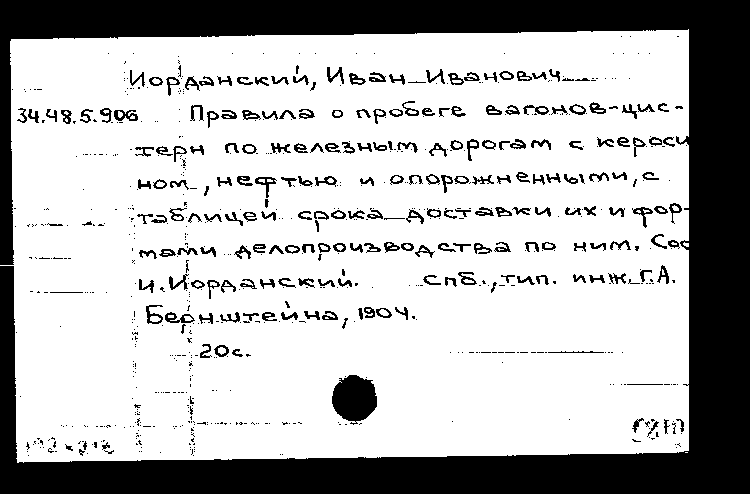 Иорданский, Иван Иванович
34.48.5.906 Правила о пробеге вагонов-цис-
терн по железным дорогам с кероси
ном, нефтью и опорожненными, с
таблицей срока доставки их и фор-
мами делопроизводства по ним. Сос
И. Иорданский. Спб., тип. инж. Г.А.
Бернштейна, 1904.
20 с.